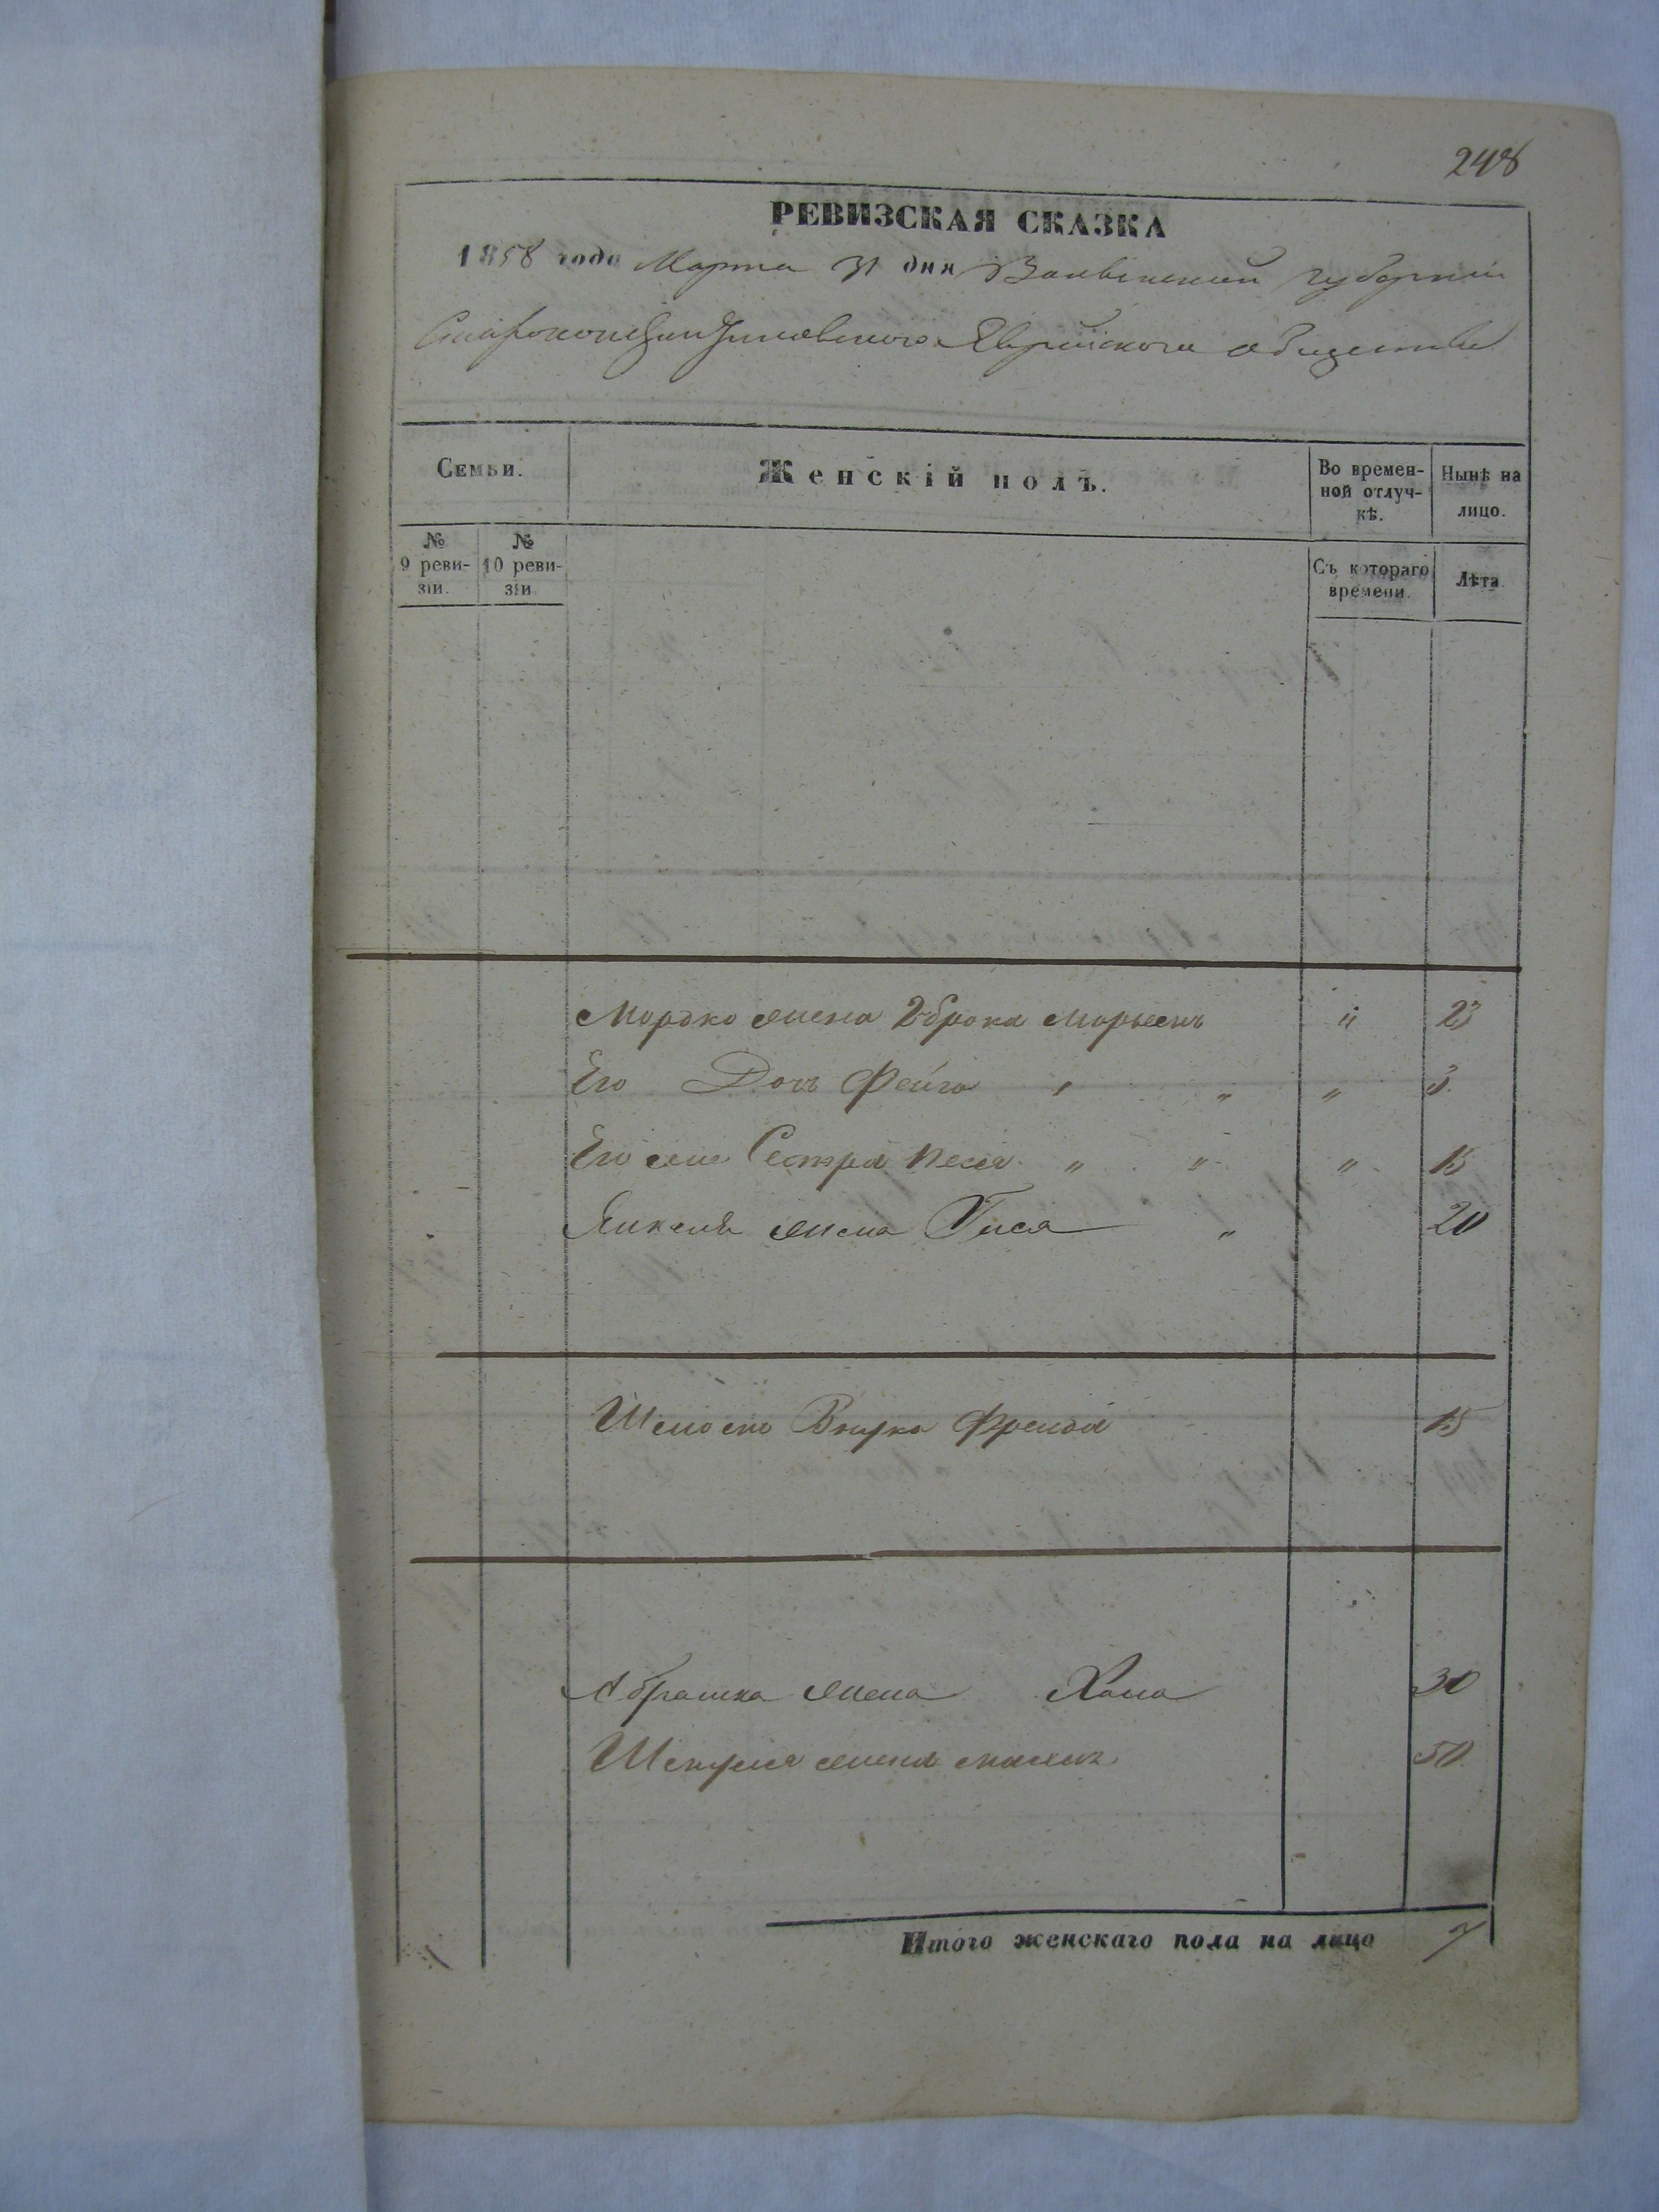 248
РЕВИЗСКАЯ СКАЗКА
1858 года Марта 31 дня Волынской губернии
Староконстантиновского Еврейского общества
Семьи. Женскій полъ. Во времен-ной отлуч-кѣ. Нынѣ на лицо.
№ 9 реви-зіи. № 10 реви-зіи. Съ котораго времени. Лѣта.
Мордко жена Двброка " 23
Его Дочь Фейга " " " 3
Его же Сестра Песя " " " 15
Янкеля жена Гися " 20
Внука Фрейда 15
Абрамка жена Хана 30
жена 50
Итого женскаго пола на лицо 7